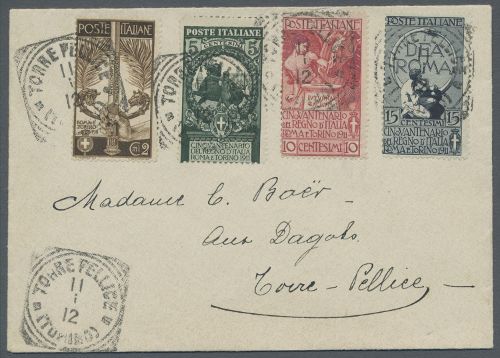 POSTE ITALIANE
ROMA E TORINO 1911
CMI 2
POSTE ITALIANE
5 CENTESIMI 5
CINQVANTENARIO
DEL REGNO D'ITALIA
ROMA E TORINO 1911
POSTE ITALIANE
CINQVANTENARIO
DEL REGNO D'ITALIA
ROMA E TORINO 1911
10 CENTESIMI 10
POSTE ITALIANE
DEA
ROMA
15 CENTESIMI 15
CINQVANTENARIO
DEL REGNO D'ITALIA
ROMA E TORINO 1911
TORRE PELLICE
11
12
Madame C. Boër
Aux Dagots
Torre-Pellice
TORRE PELLICE
11
1
12
(TORINO)